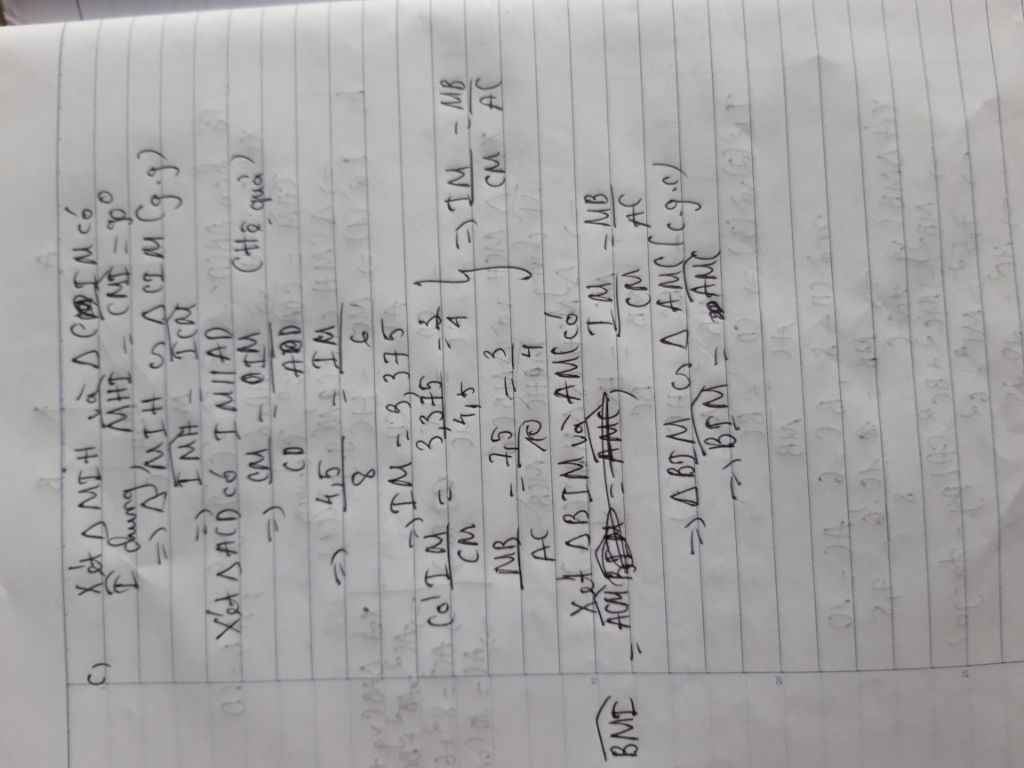 c) Xét Δ MIH và Δ CIM có
Î chung MHI = CMI = 90°
=> Δ MIH ∽ Δ CIM (g.g)
=> IMH = ICM
Xét Δ ACD có IM // AD
=> CM/CD = IM/AD (Hệ quả)
=> 4,5/8 = IM/6
=> IM = 3,375
Có IM/CM = 3,375/4,5 = 3/4
MB/AC = 7,5/10 = 3/4 } => IM/CM = MB/AC
Xét Δ BIM và AMC có
BMI = ACM IM/CM = MB/AC
=> Δ BIM ∽ Δ AMC (c.g.c)
=> BIM = AMC